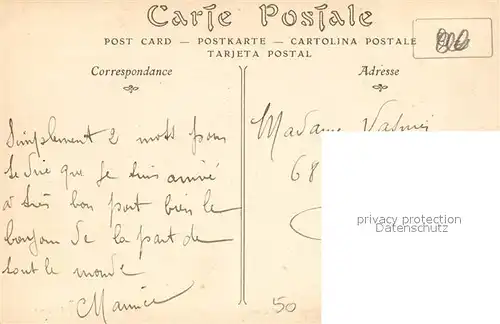 Carte Postale
POST CARD — POSTKARTE — CARTOLINA POSTALE
TARJETA POSTAL
Correspondance
Adresse
Simplement 2 mots pour
te dire que je suis arrivé
à très bon port bien le
bonjour de la part de
tout le monde
Maurice
Madame
68
privacy protection
Datenschutz
50